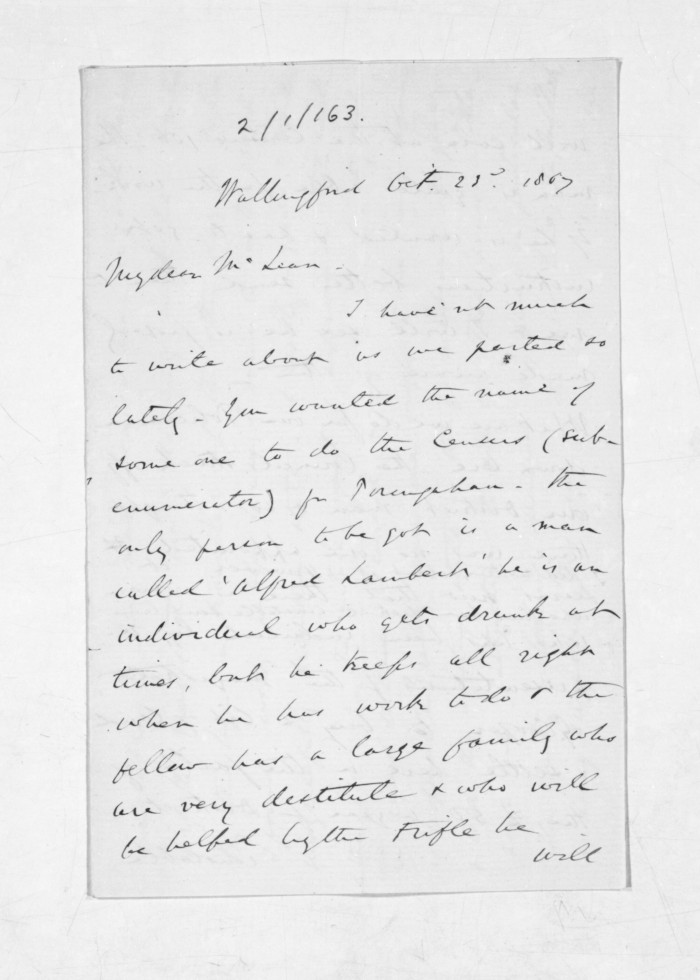 2/1/163.
Wallingford Oct. 23d. 1867
My dear McLean.
I have not much
to write about as we parted so
lately - You wanted the name of
some one to do the Census (sub-
enumerator) for Porangahau - the
only person to be got is a man
called 'Alfred Lambert' he is an
individual who gets drunk at
times, but he keeps all right
when he has work to do & the
fellow has a large family who
are very destitute & who will
be helped by the trifle he
will